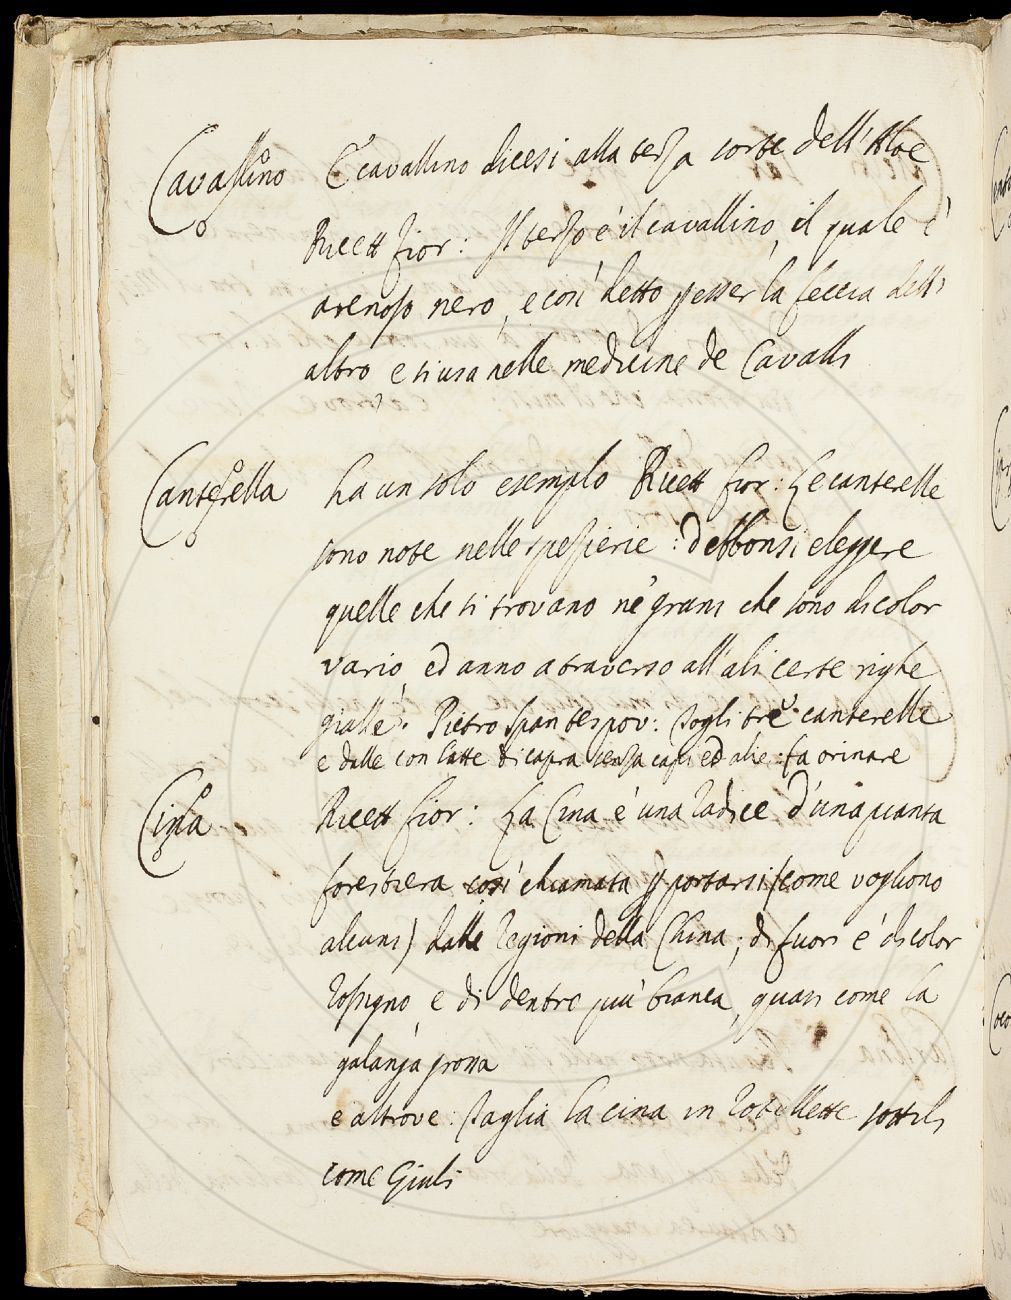 Cavallino E cavallino dicesi alla terza sorte dell'Aloe
Ricett fior: Il terzo è il cavallino, il quale è
arenoso nero, e così detto p esser la feccia dell'
altro e si usa nelle medicine de Cavalli
Canterella ha un solo esemplo Ricett fior: Le canterelle
sono note nelle spezierie: debbonsi eleggere
quelle che si trovano ne' grani che sono di color
vario, ed anno a traverso all'ali certe righe
gialle. Pietro Span tes pov: Togli tre canterelle
e dalle con latte di capra senza capi ed alie: fa orinare
Cina Ricett fior: La Cina è una radice d'una pianta
forestiera così chiamata p portarsi (come vogliono
alcuni) dalle regioni della China; di fuori è di color
rossigno e di dentro più bianca, quasi come la
galanga grossa
e altrove: Taglia la cina in rotellette sottili
come Giuli